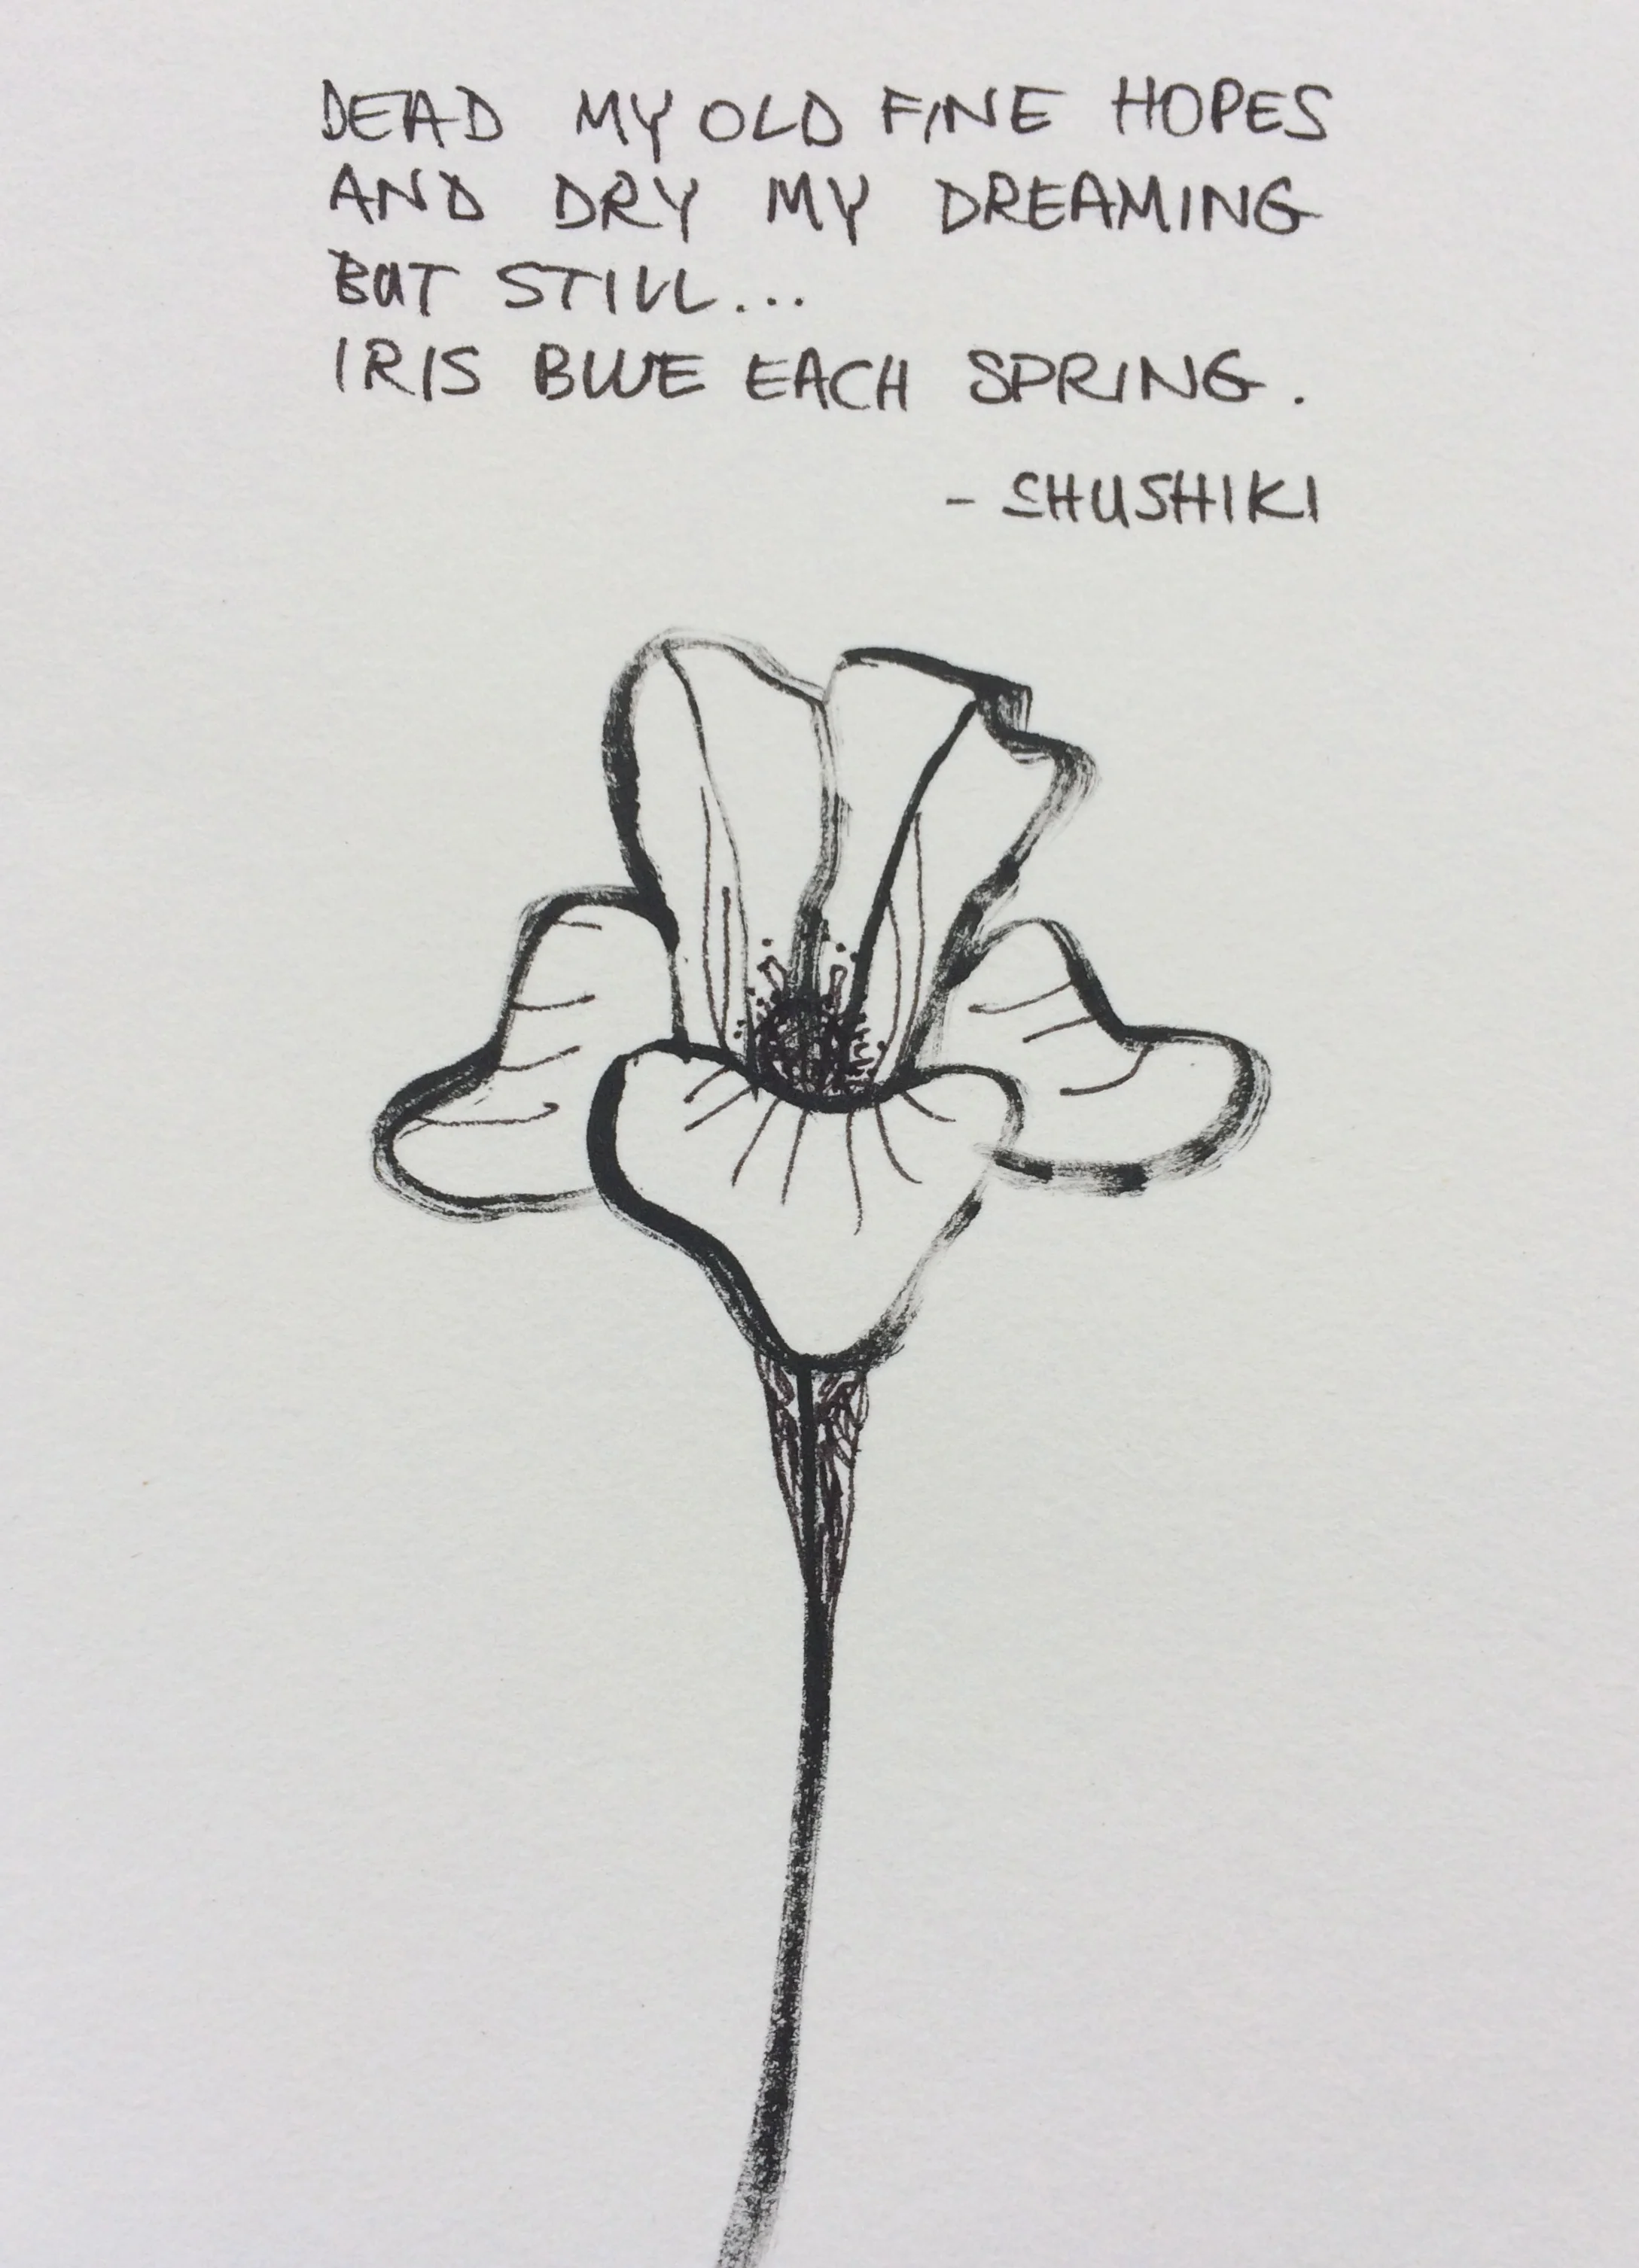 DEAD MY OLD FINE HOPES
AND DRY MY DREAMING
BUT STILL...
IRIS BLUE EACH SPRING.
- SHUSHIKI